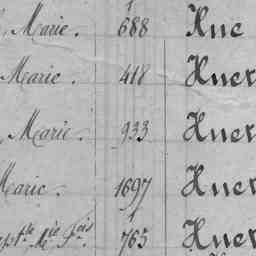 Marie. 688 Hue
Marie. 418 Huer
Marie. 933 Huer
Marie. 1697 Huer
Bapt.te M.ie F.ois 765 Huer